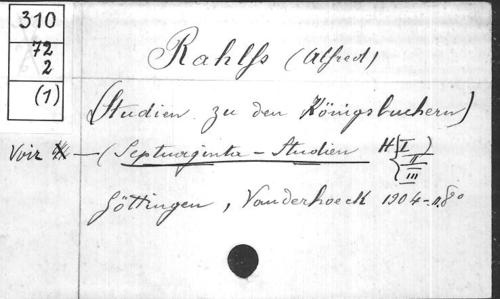 310
72
2
(1)
Rahlfs (Alfred)
(Studien zu den Königsbuchern)
Voir — (Septuaginta – Studien H { I )
II
III
Göttingen, Vanderhoeck 1904 - 8°